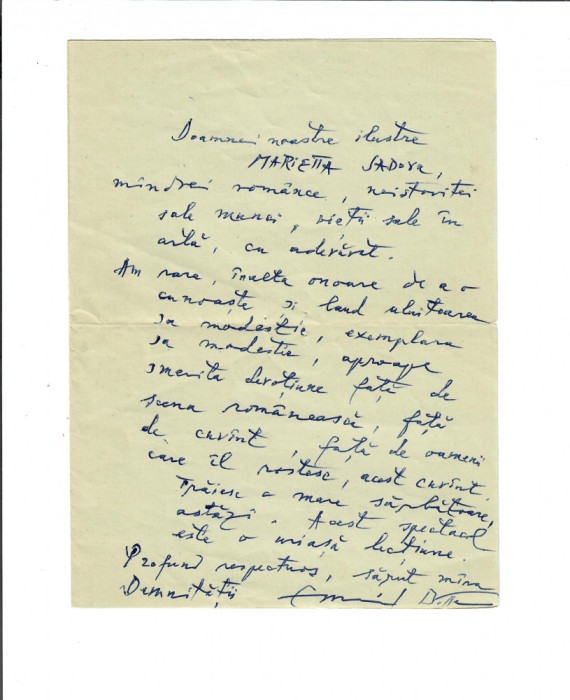 Doamnei noastre ilustre
MARIETTA SADOVA,
mîndrei românce, neistovitei
sale munci, vieții sale în
artă, cu adevărat.
Am rare, înalta onoare de a o
cunoaște și laud uluitoarea
sa modestie, exemplara
sa modestie, aproape
smerita devoțiune față de
scena românească, față
de cuvînt, față de oamenii
care îl rostesc, acest cuvînt.
Trăiesc o mare sărbătoare,
astăzi. Acest spectacol
este o uriașă lecțiune.
Profund respectuos, sărut mîna
Domnității Emil Botta